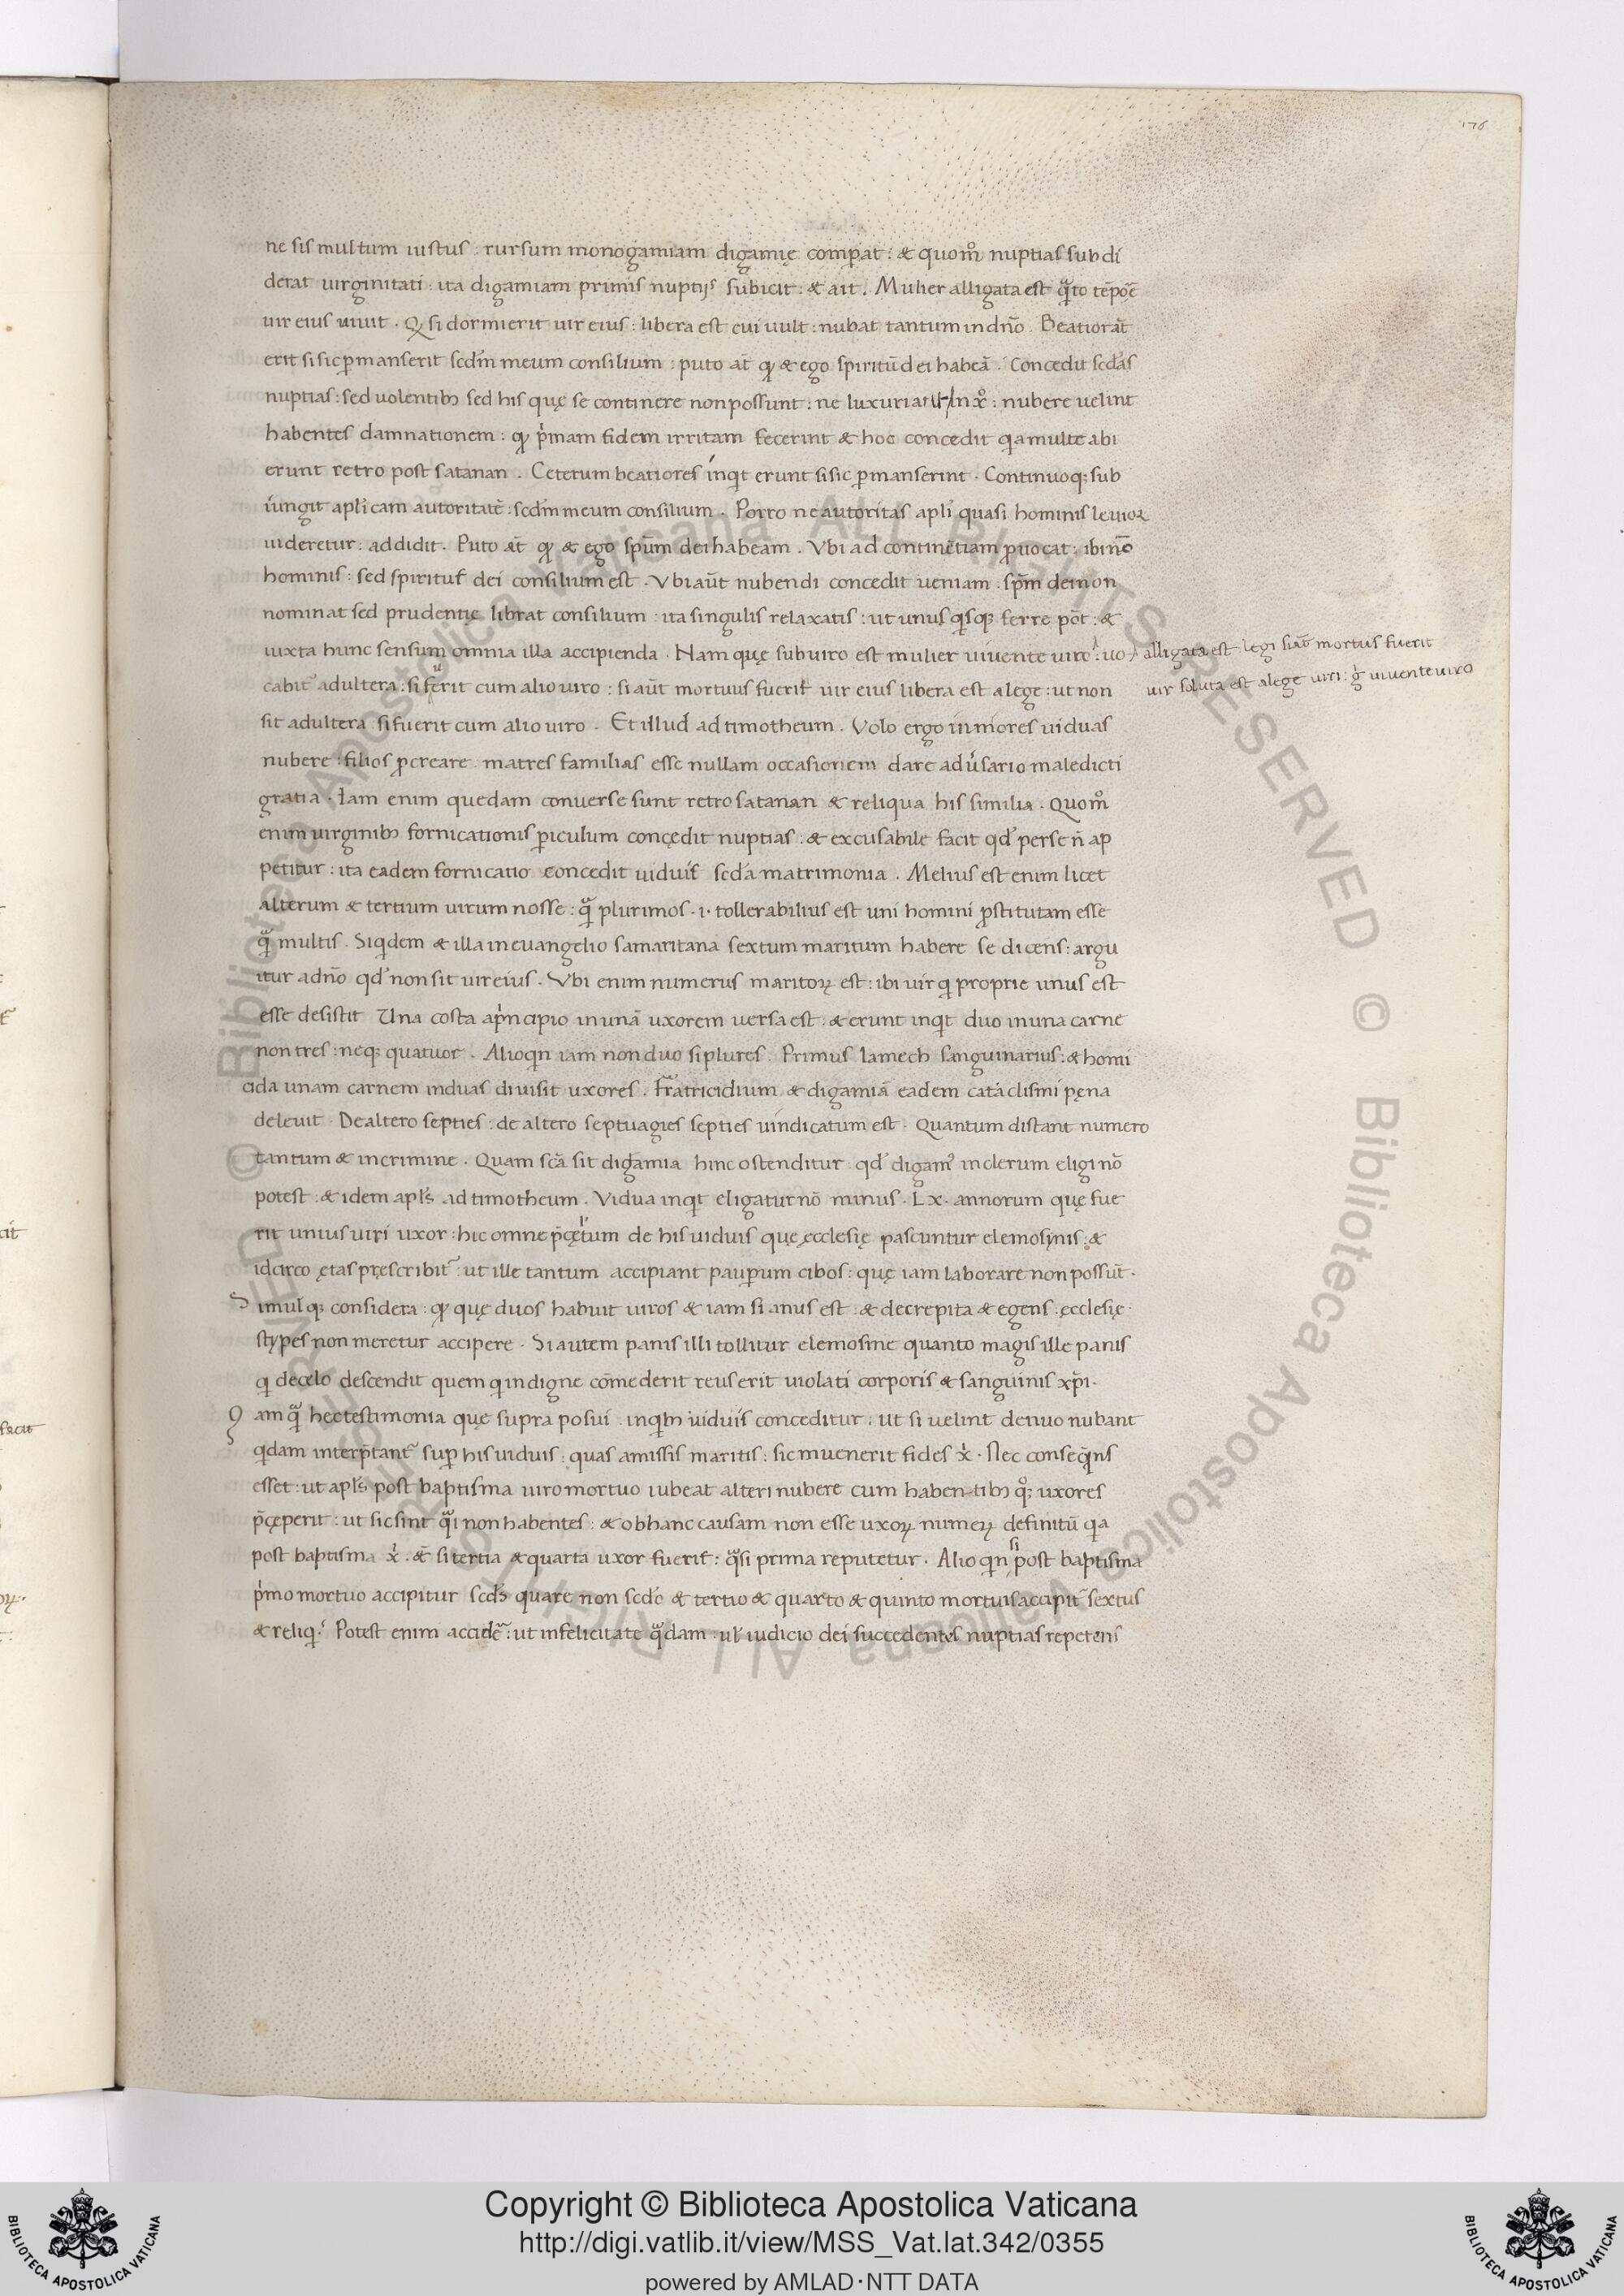 176
ne sis multum iustus : rursum monogamiam digamię comparat : & quom̊ nuptias subdi
derat uirginitati : ita digamiam primis nuptijs subicit : & ait . Mulier alligata est q̃to tẽpoꝛ̃
uir eius uiuit . Qꝫ si dormierit uir eius : libera est cui uult : nubat tantum in dño . Beatior at̃
erit si sic ꝑmanserit scd̃m meum consilium : puto at̃ qꝫ & ego spiritũ dei habeã . Concedit scd̃as
nuptias : sed uolentibꝫ sed his quę se continere non possunt : ne luxuriat in xº : nubere uelint
habentes damnationem : qꝫ pⁱmam fidem irritam fecerint & hoc concedit qⁱa multe abi
erunt retro post satanan . Ceterum beatiores inqⁱt erunt si sic ꝑmanserint . Continuoqꝫ sub
iungit apl̃icam autoritatẽ : scd̃m meum consilium . Porro ne autoritas apl̃i quasi hominis leuioꝛ
uideretur : addidit . Puto at̃ qꝫ & ego spũm dei habeam . Vbi ad continẽtiam ꝓuocat : ibi nõ
hominis : sed spiritus dei consilium est . Vbi aũt nubendi concedit ueniam . spm̃ dei non
nominat sed prudentię librat consilium : ita singulis relaxatis : ut unus qⁱsqꝫ ferre pot̃ : &
iuxta hunc sensum omnia illa accipienda . Nam quę sub uiro est mulier uiuente uiro : uo
alligata est legi si at̃ mortus fuerit
cabit᷑ adultera : si fuerit cum alio uiro : si aũt mortuus fuerit uir eius libera est a lege : ut non
uir soluta est a lege uiri : gⁱ uiuente uiro
sit adultera si fuerit cum alio uiro . Et illud ad timotheum . Volo ergo inmiores uiduas
nubere : filios ꝓcreare matres familias esse nullam occasionem dare adũsario maledicti
gratia . Iam enim quedam conuerse sunt retro satanan & reliqua his similia . Quom̊
enim uirginibꝫ fornicationis ꝑiculum concedit nuptias : & excusabile facit qd̃ per se ñ ap
petitur : ita eadem fornicatio concedit uiduis scd̃a matrimonia . Melius est enim licet
alterum & tertium uirum nosse : q̃ plurimos . i . tollerabilius est uni homini ꝓstitutam esse
q̃ multis . Siqⁱdem & illa in euangelio samaritana sextum maritum habere se dicens : argu
itur a dño qd̃ non sit uir eius . Vbi enim numerus maritoꝝ est : ibi uir qⁱ proprie unus est
esse desistit Una costa a pⁱncipio in unã uxorem uersa est : & erunt inqⁱt duo in una carne
non tres : neqꝫ quatuor . Alioqⁱn iam non duo si plures . Primus lamech sanguinarius : & homi
cida unam carnem in duas diuisit uxores . Fratricidium & digamiã eadem cataclismi pęna
deleuit . De altero septies : de altero septuagies septies uindicatum est . Quantum distant numero
tantum & in crimine . Quam scã sit digamia hinc ostenditur qd̃ digam᷒ in clerum eligi nõ
potest : & idem apl̃s ad timotheum . Vidua inqⁱt eligatur nõ minus . LX . annorum quę fue
rit unius uiri uxor : hic omne p̃cęptum de his uiduis quę ecclesię pascuntur elemosynis : &
idcirco ętas prescribit᷑ : ut ille tantum accipiant pauꝑum cibos : quę iam laborare non possũt .
Simul qꝫ considera : qꝫ quę duos habuit uiros & iam si anus est : & decrepita & egens : ecclesię
stypes non meretur accipere . Si autem panis illi tollitur elemosine quanto magis ille panis
qⁱ de cęlo descendit quem qⁱ indigne cõmederit reus erit uiolati corporis & sanguinis xpⁱ .
am q̃ hec testimonia quę supra posui inqⁱbꝫ uiduis conceditur . ut si uelint denuo nubant
qⁱdam interp̃tant᷑ suꝑ his uiduis : quas amissis maritis : sic inuenerit fides xⁱ . Nec conseq̃ns
esset : ut apl̃s post baptisma uiro mortuo iubeat alteri nubere cum habentibꝫ qºqꝫ uxores
p̃cęperit : ut sic sint q̃si non habentes : & ob hanc causam non esse uxoꝝ numeꝝ definitũ qⁱa
post baptisma xⁱ . & si tertia & quarta uxor fuerit : q̃si prima reputetur . Alioqⁱn si post baptisma
pⁱmo mortuo accipitur scd̃s quare non scd̃o & tertio & quarto & quinto mortuis accipit᷑ sextus
& reliqⁱ . Potest enim accidẽ : ut infelicitate q̃dam ul̃ iudicio dei succedentes nuptias repetens
Copyright © Biblioteca Apostolica Vaticana
http://digi.vatlib.it/view/MSS_Vat.lat.342/0355
powered by AMLAD·NTT DATA
BIBLIOTECA APOSTOLICA VATICANA
BIBLIOTECA APOSTOLICA VATICANA